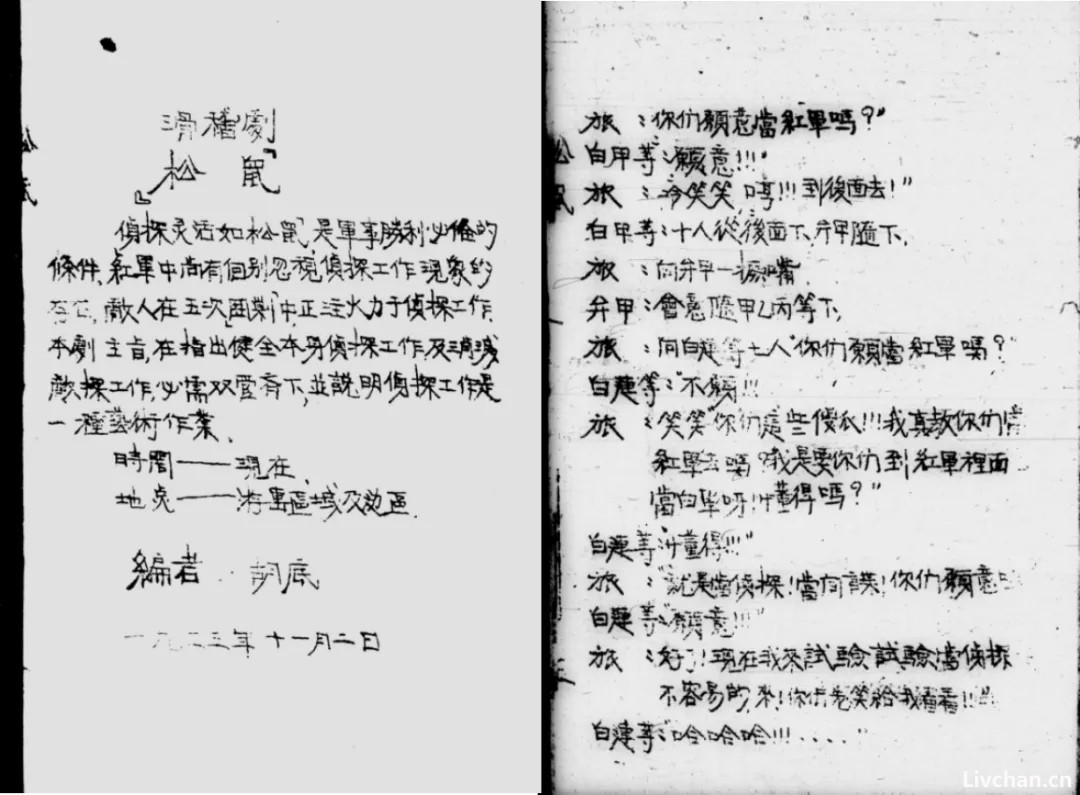 滑稽劇
『松鼠』
偵探灵活如松鼠,是軍事勝利必備的
條件,紅軍中尚有個別忽視偵探工作現象的
存在,敵人在五次『圍剿』中,正注火力于偵探工作,
本劇主旨,在指出健全本身偵探工作及消滅
敵探工作,必需双管齊下,並說明偵探工作是
一種藝術作業.
時間——現在.
地点——游击區域及边區.
編者.胡底
一九三三年十一月二日
松鼠
旅:"你们願意當紅軍嗎?"
白甲等:"願意!!!"
旅:冷笑笑"哼!!!到後面去!"
白甲等:十人從後面下,弁甲隨下,
旅:向弁甲一振嘴.
弁甲:會意隨甲乙丙等下,
旅:向白連等七人"你们願當紅軍嗎?"
白連等:"不願!!!
旅:笑笑"你们這些傻瓜!!!我真教你们當
紅軍去嗎?我是要你们到紅軍裡面
當白軍呀!!!懂得嗎?"
白連等:"懂得!!!"
旅:"就是當偵探!當间諜!你们願意
白連等:"願意!!!"
旅:好了!現在我來試驗試驗,當偵探
不容易的,來!你们先笑給我看看!!!"
白連等:"哈哈哈!!!....."
Livchan.cn